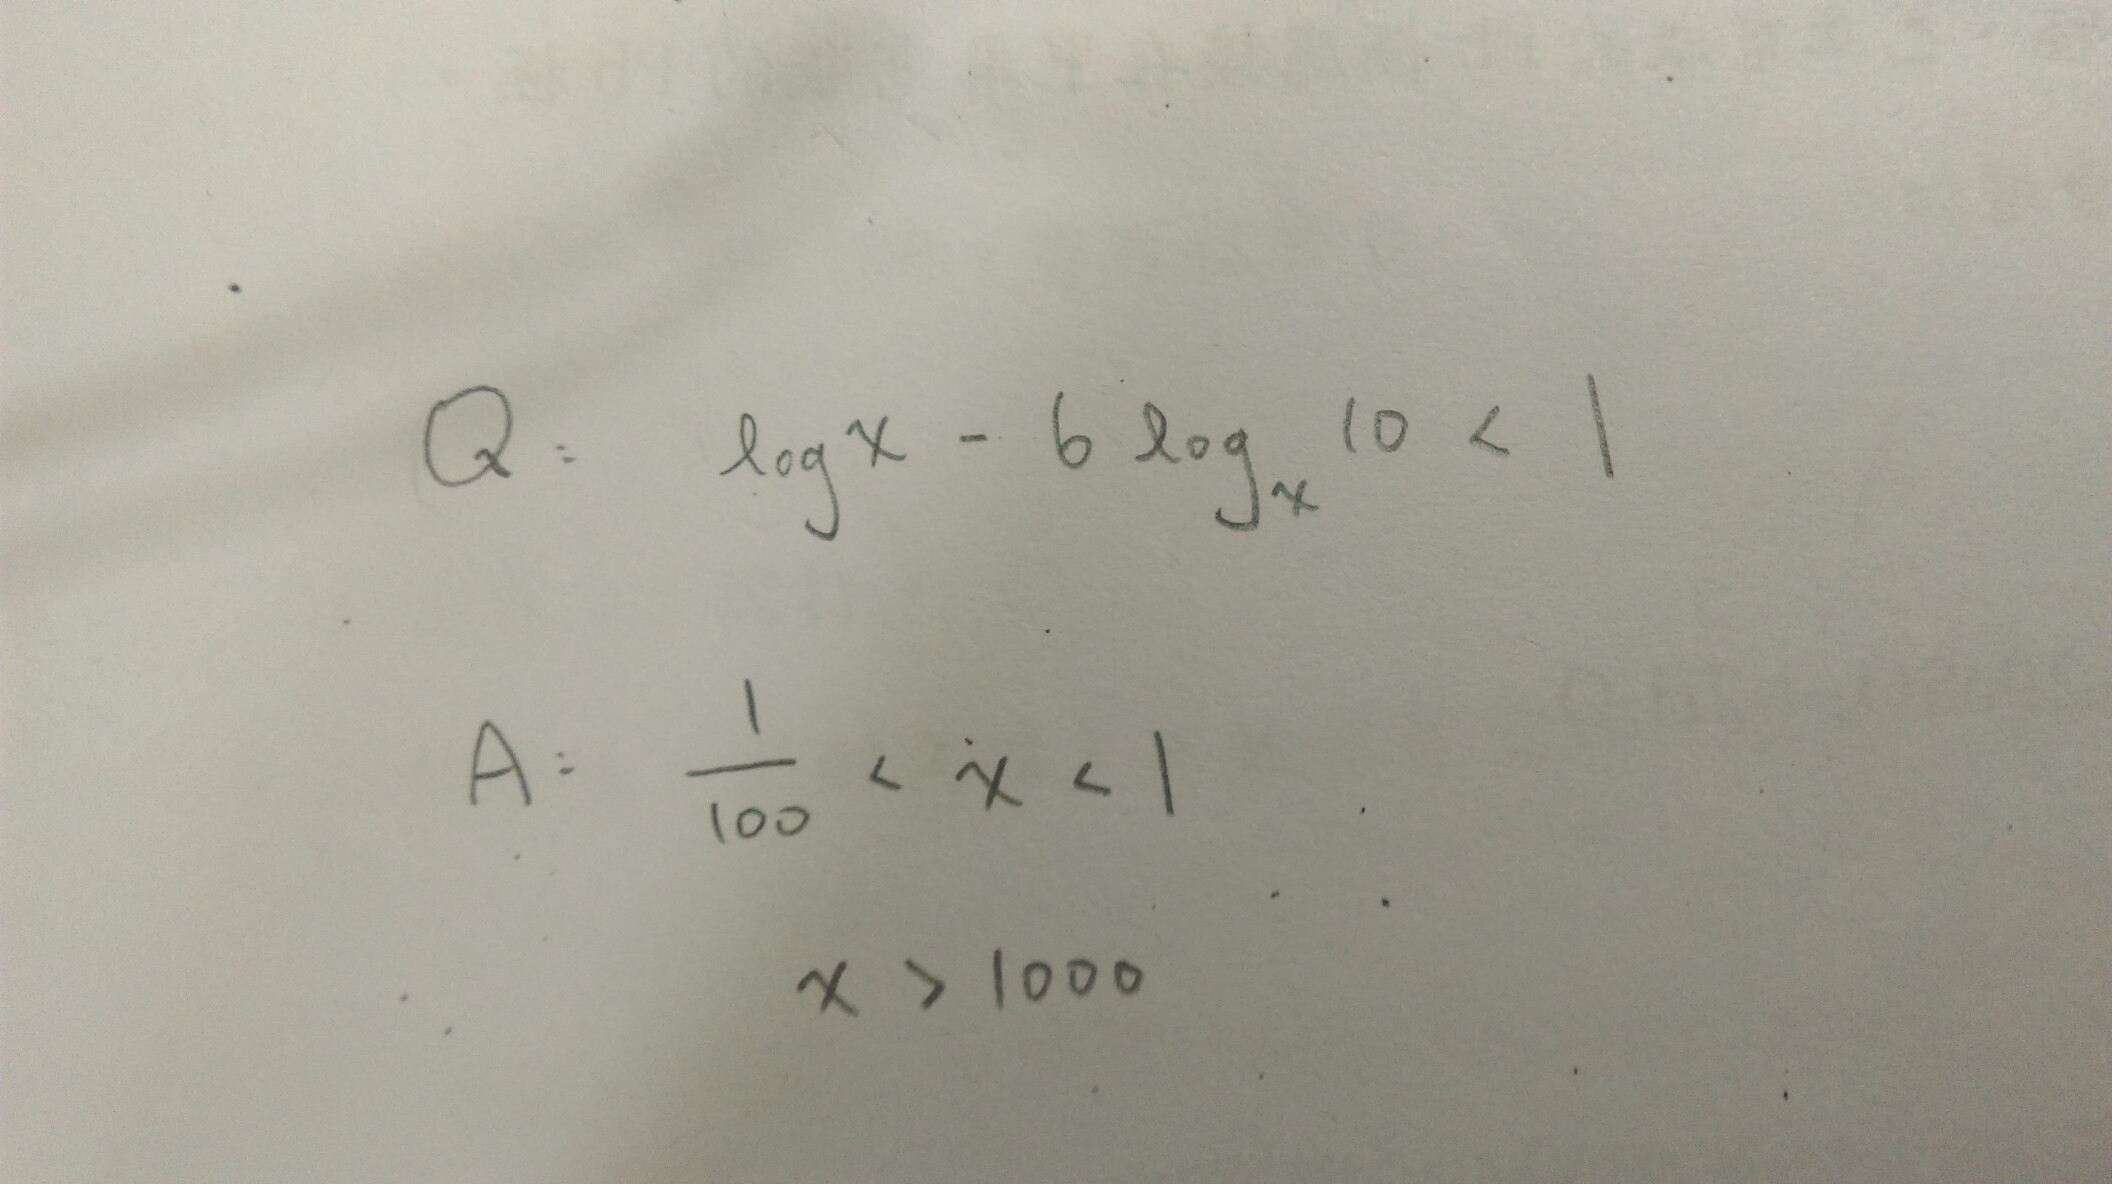 Q: log x - 6 log_x 10 < 1
A: 1/100 < x < 1
x > 1000